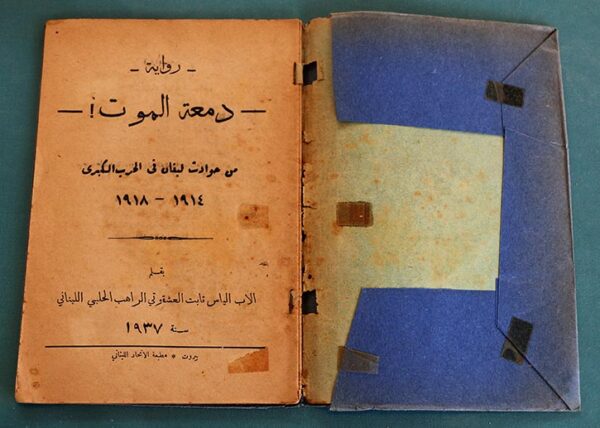 - رواية -
— دمعة الموت! —
من حوادث لبنان في الحرب الكبرى
١٩١٤ - ١٩١٨
بقلم
الاب الياس ثابت العشقوتي الراهب الحلبي اللبناني
سنة ١٩٣٧
بيروت * مطبعة الاتحاد اللبناني